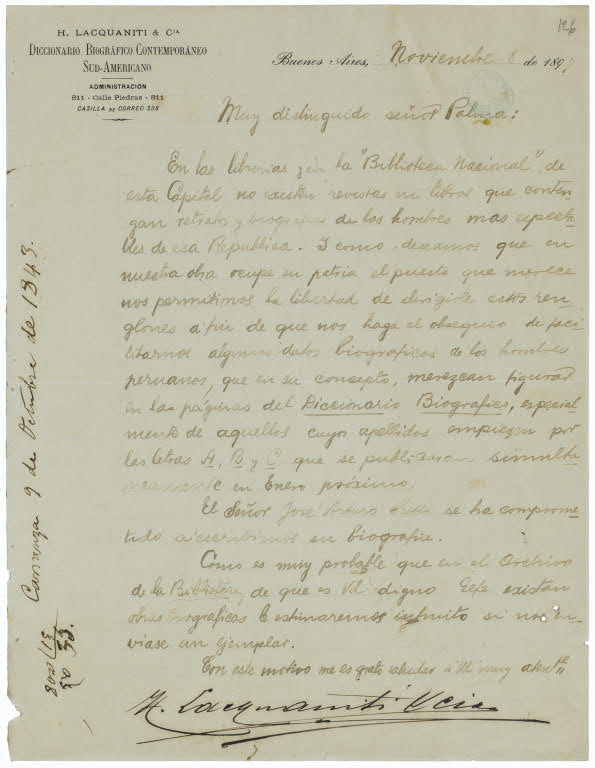 126
H. LACQUANITI & Cía
DICCIONARIO BIOGRÁFICO CONTEMPORÁNEO
SUD-AMERICANO
ADMINISTRACION
811 - Calle Piedras - 811
CASILLA DE CORREO 338
Buenos Aires, Noviembre 8 de 1897
Muy distinguido señor Palma:
En las librerias y en la "Biblioteca Nacional", de
esta Capital no existen revistas ni libros que conten-
gan retratos y biografias de los hombres mas especta-
bles de esa Republica. Y como deseamos que en
nuestra obra ocupe su patria el puesto que merece
nos permitimos la libertad de dirigirle estos ren-
glones a fin de que nos haga el obsequio de faci-
litarnos algunos datos biograficos de los hombres
peruanos, que en su concepto, merezcan figurar
en las páginas del Diccionario Biografico, especial
mente de aquellos cuyos apellidos empiezen por
las letras A, B y C que se publicaran simulta
neamente en Enero próximo.
El Señor José Arturo se ha comprome-
tido a escribirnos su biografia.
Como es muy probable que en el Archivo
de la Biblioteca de que es Vd digno Gefe existan
obras biograficas le estimaremos infinito si nos en-
viase un ejemplar.
Con este motivo me es grato saludar a Vd muy atentte
H. Lacquaniti y Cia
Carranza 9 de Octubre de 1843.